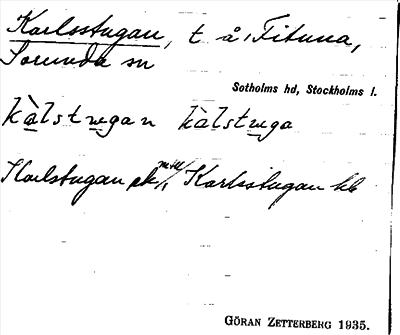 Karlsstugan, t å, Fituna,
Sorunda sn
Sotholms hd, Stockholms l.
kàlstugan kàlstuga
Karlstugan Karlsstugan
GÖRAN ZETTERBERG 1935.